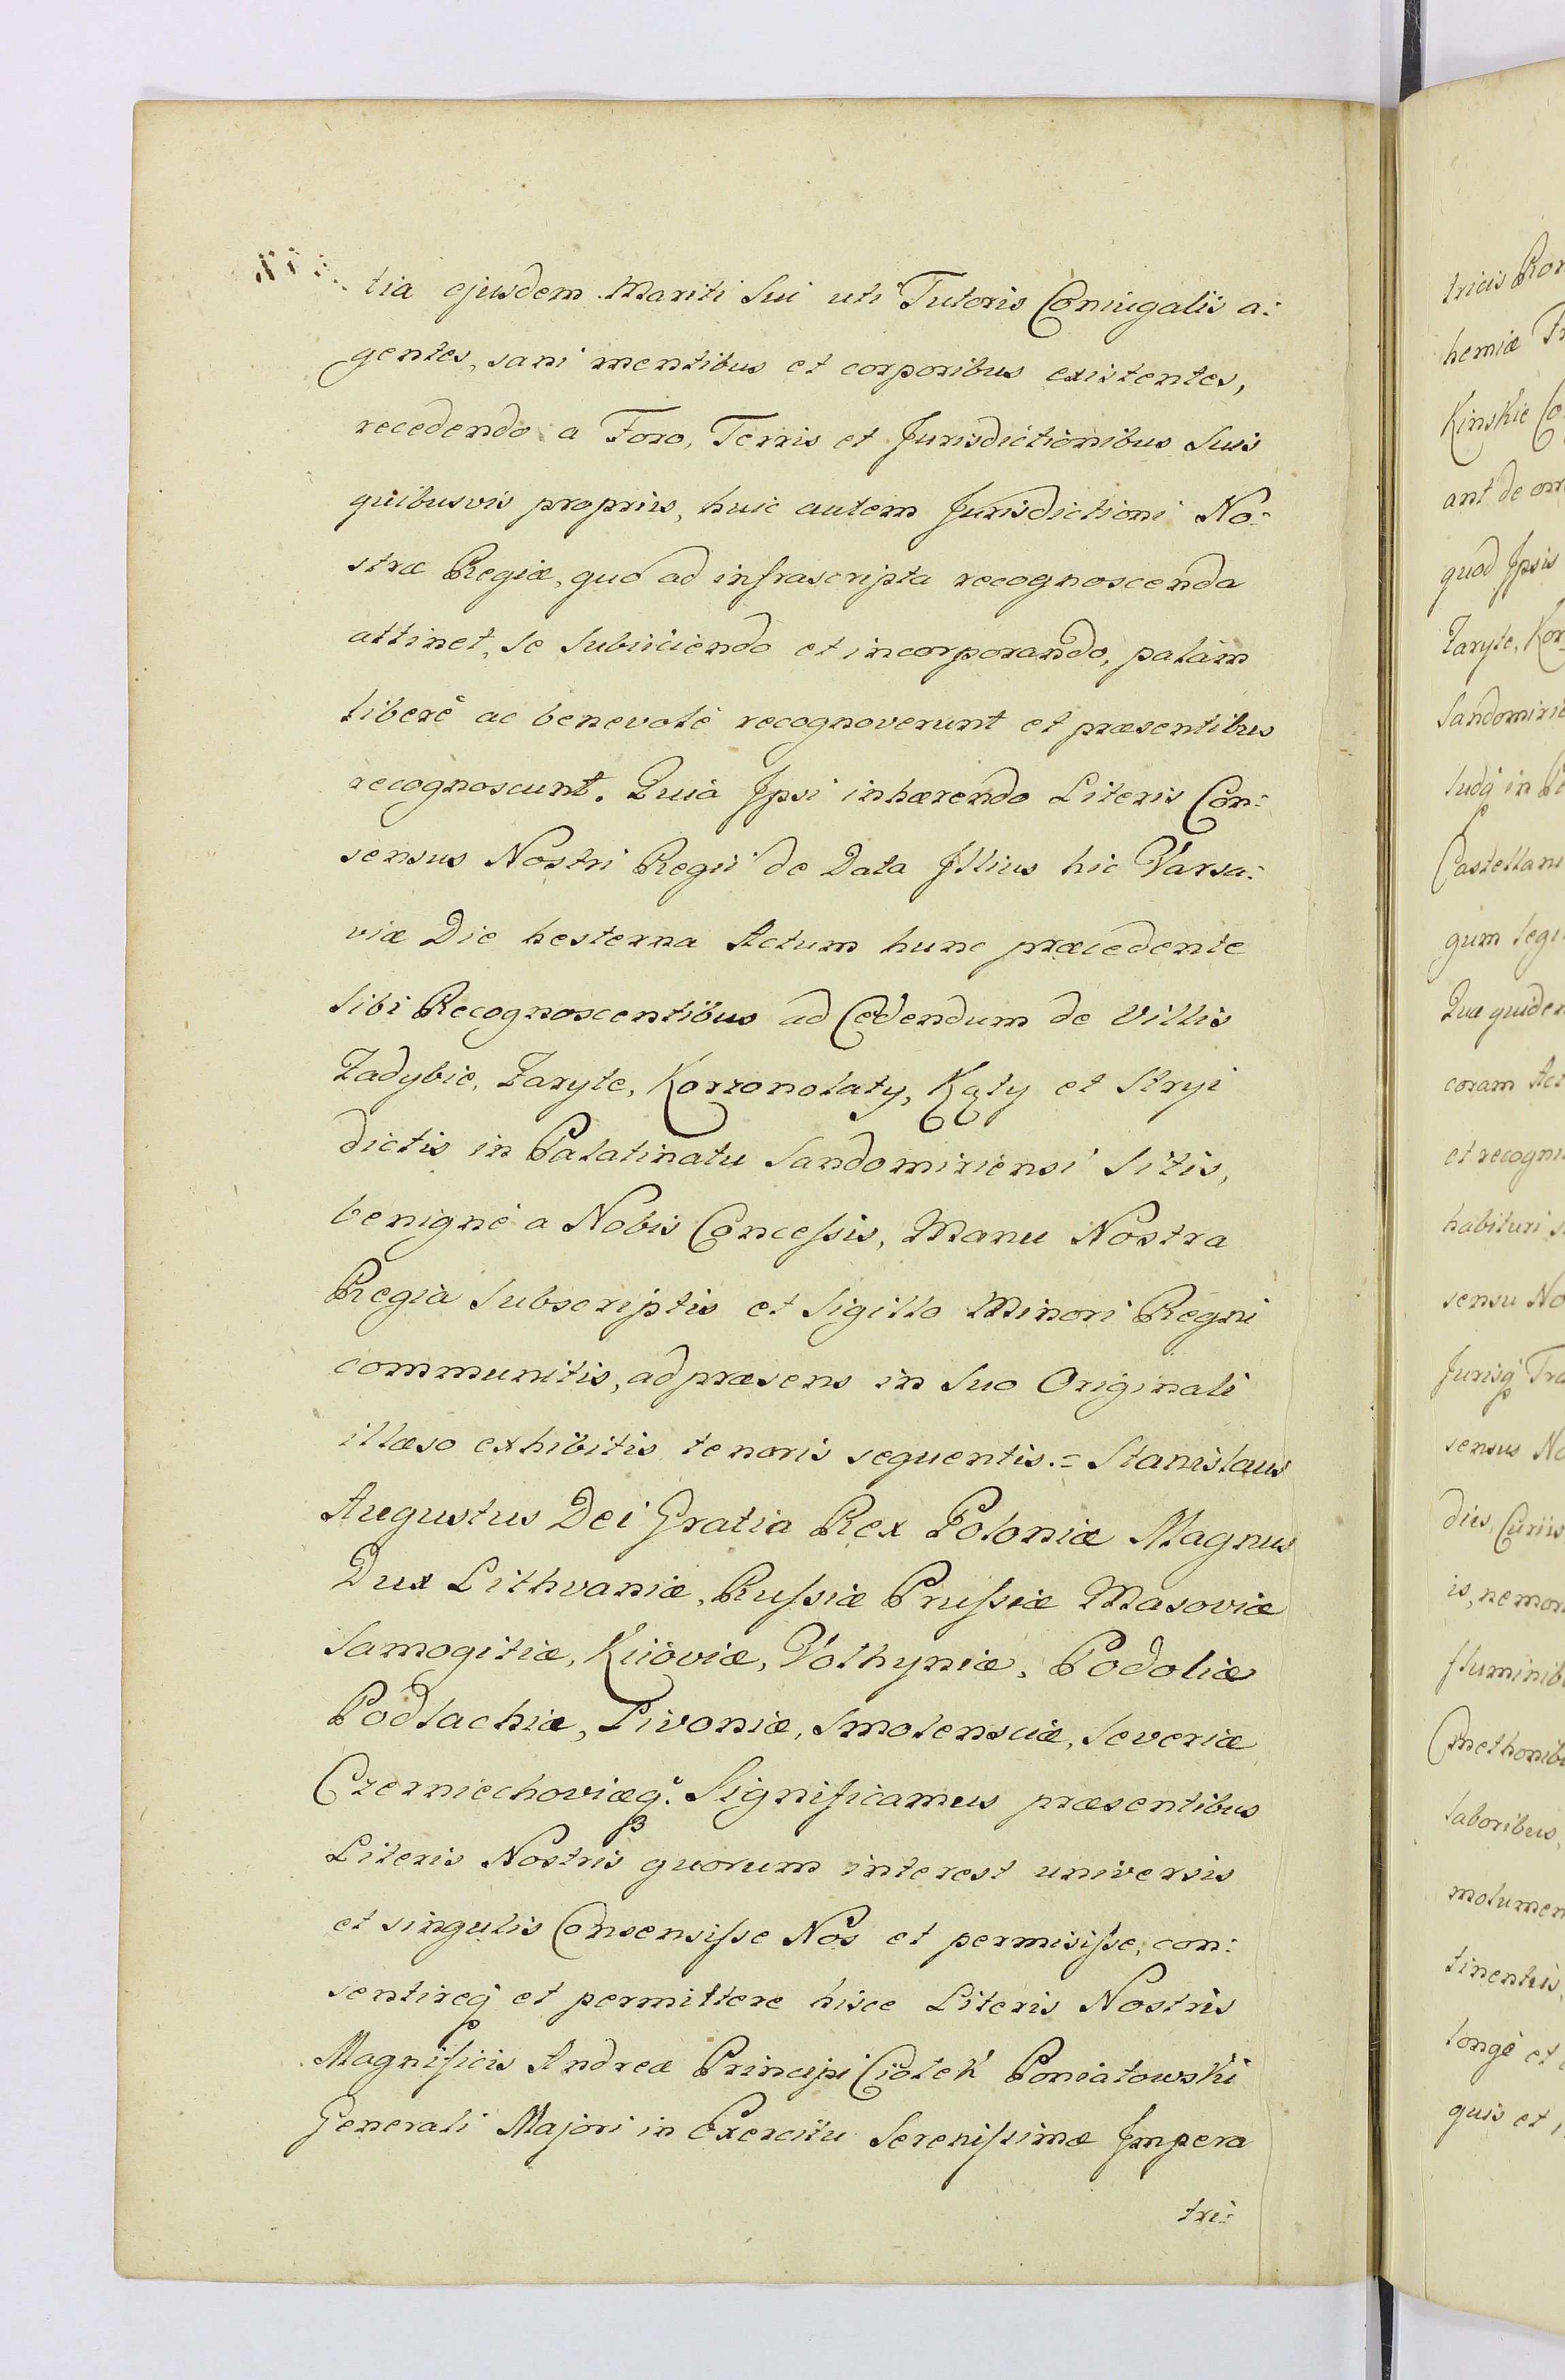 tia ejusdem Mariti Sui uti Tutoris Coniugalis a:
gentes, sani mentibus et corporibus existentes,
recedendo a Foro, Terris et Jurisdictionibus Suis
quibusvis propriis, huic autem Jurisdictioni No:
stræ Regiæ, quo ad infrascripta recognoscenda
attinet, se Subiiciendo et incorporando, palam
liberè ac benevolè recognoverunt et præsentibus
recognoscunt. Quia Jpsi inhærendo Literis Con:
sensus Nostri Regii de Data Jllius hic Varsa:
viæ Die hesterna Actum hunc præcedente
Sibi Recognoscentibus ad Cedendum de Villis
Zadybie, Zaryte, Korzonołaty, Kąty et Stryi
dictis in Palatinatu Sandomiriensi Sitis,
benignè a Nobis Concessis, Manu Nostra
Regia Subscriptis et Sigillo Minori Regni
communitis, ad præsens in Suo Originali
illæso exhibitis tenoris sequentis.= Stanislaus
Augustus Dei Gratia Rex Poloniæ Magnus
Dux Lithvaniæ, Russiæ Prussiæ Masoviæ
Samogitiæ, Kiioviæ, Volhyniæ, Podoliæ
Podlachiæ, Livoniæ, Smolensciæ, Severiæ
Czerniechoviæq. Significamus præsentibus
Literis Nostris quorum interest universis
et singulis Consensisse Nos et permisisse, con:
sentireq et permittere hisce Literis Nostris
Magnificis Andreæ Principi Ciołek Poniatowski
Generali Majori in Exercitu Serenissimæ Jmpera
tri:
tricis Rom
hemiæ
Kinskie Co
ant de om
quod Jpsis
Zaryte, Kor
Sandomirie
ludq in
Castellani
gum legi
Quæ quidem
coram Act
et recogni
habituri s
sensu No
Jurisq Tra
sensus No
diis, Curiis
is, nemor
fluminib
Cmethonibu
laboribus,
molumen
tinentiis,
longè et
quis et